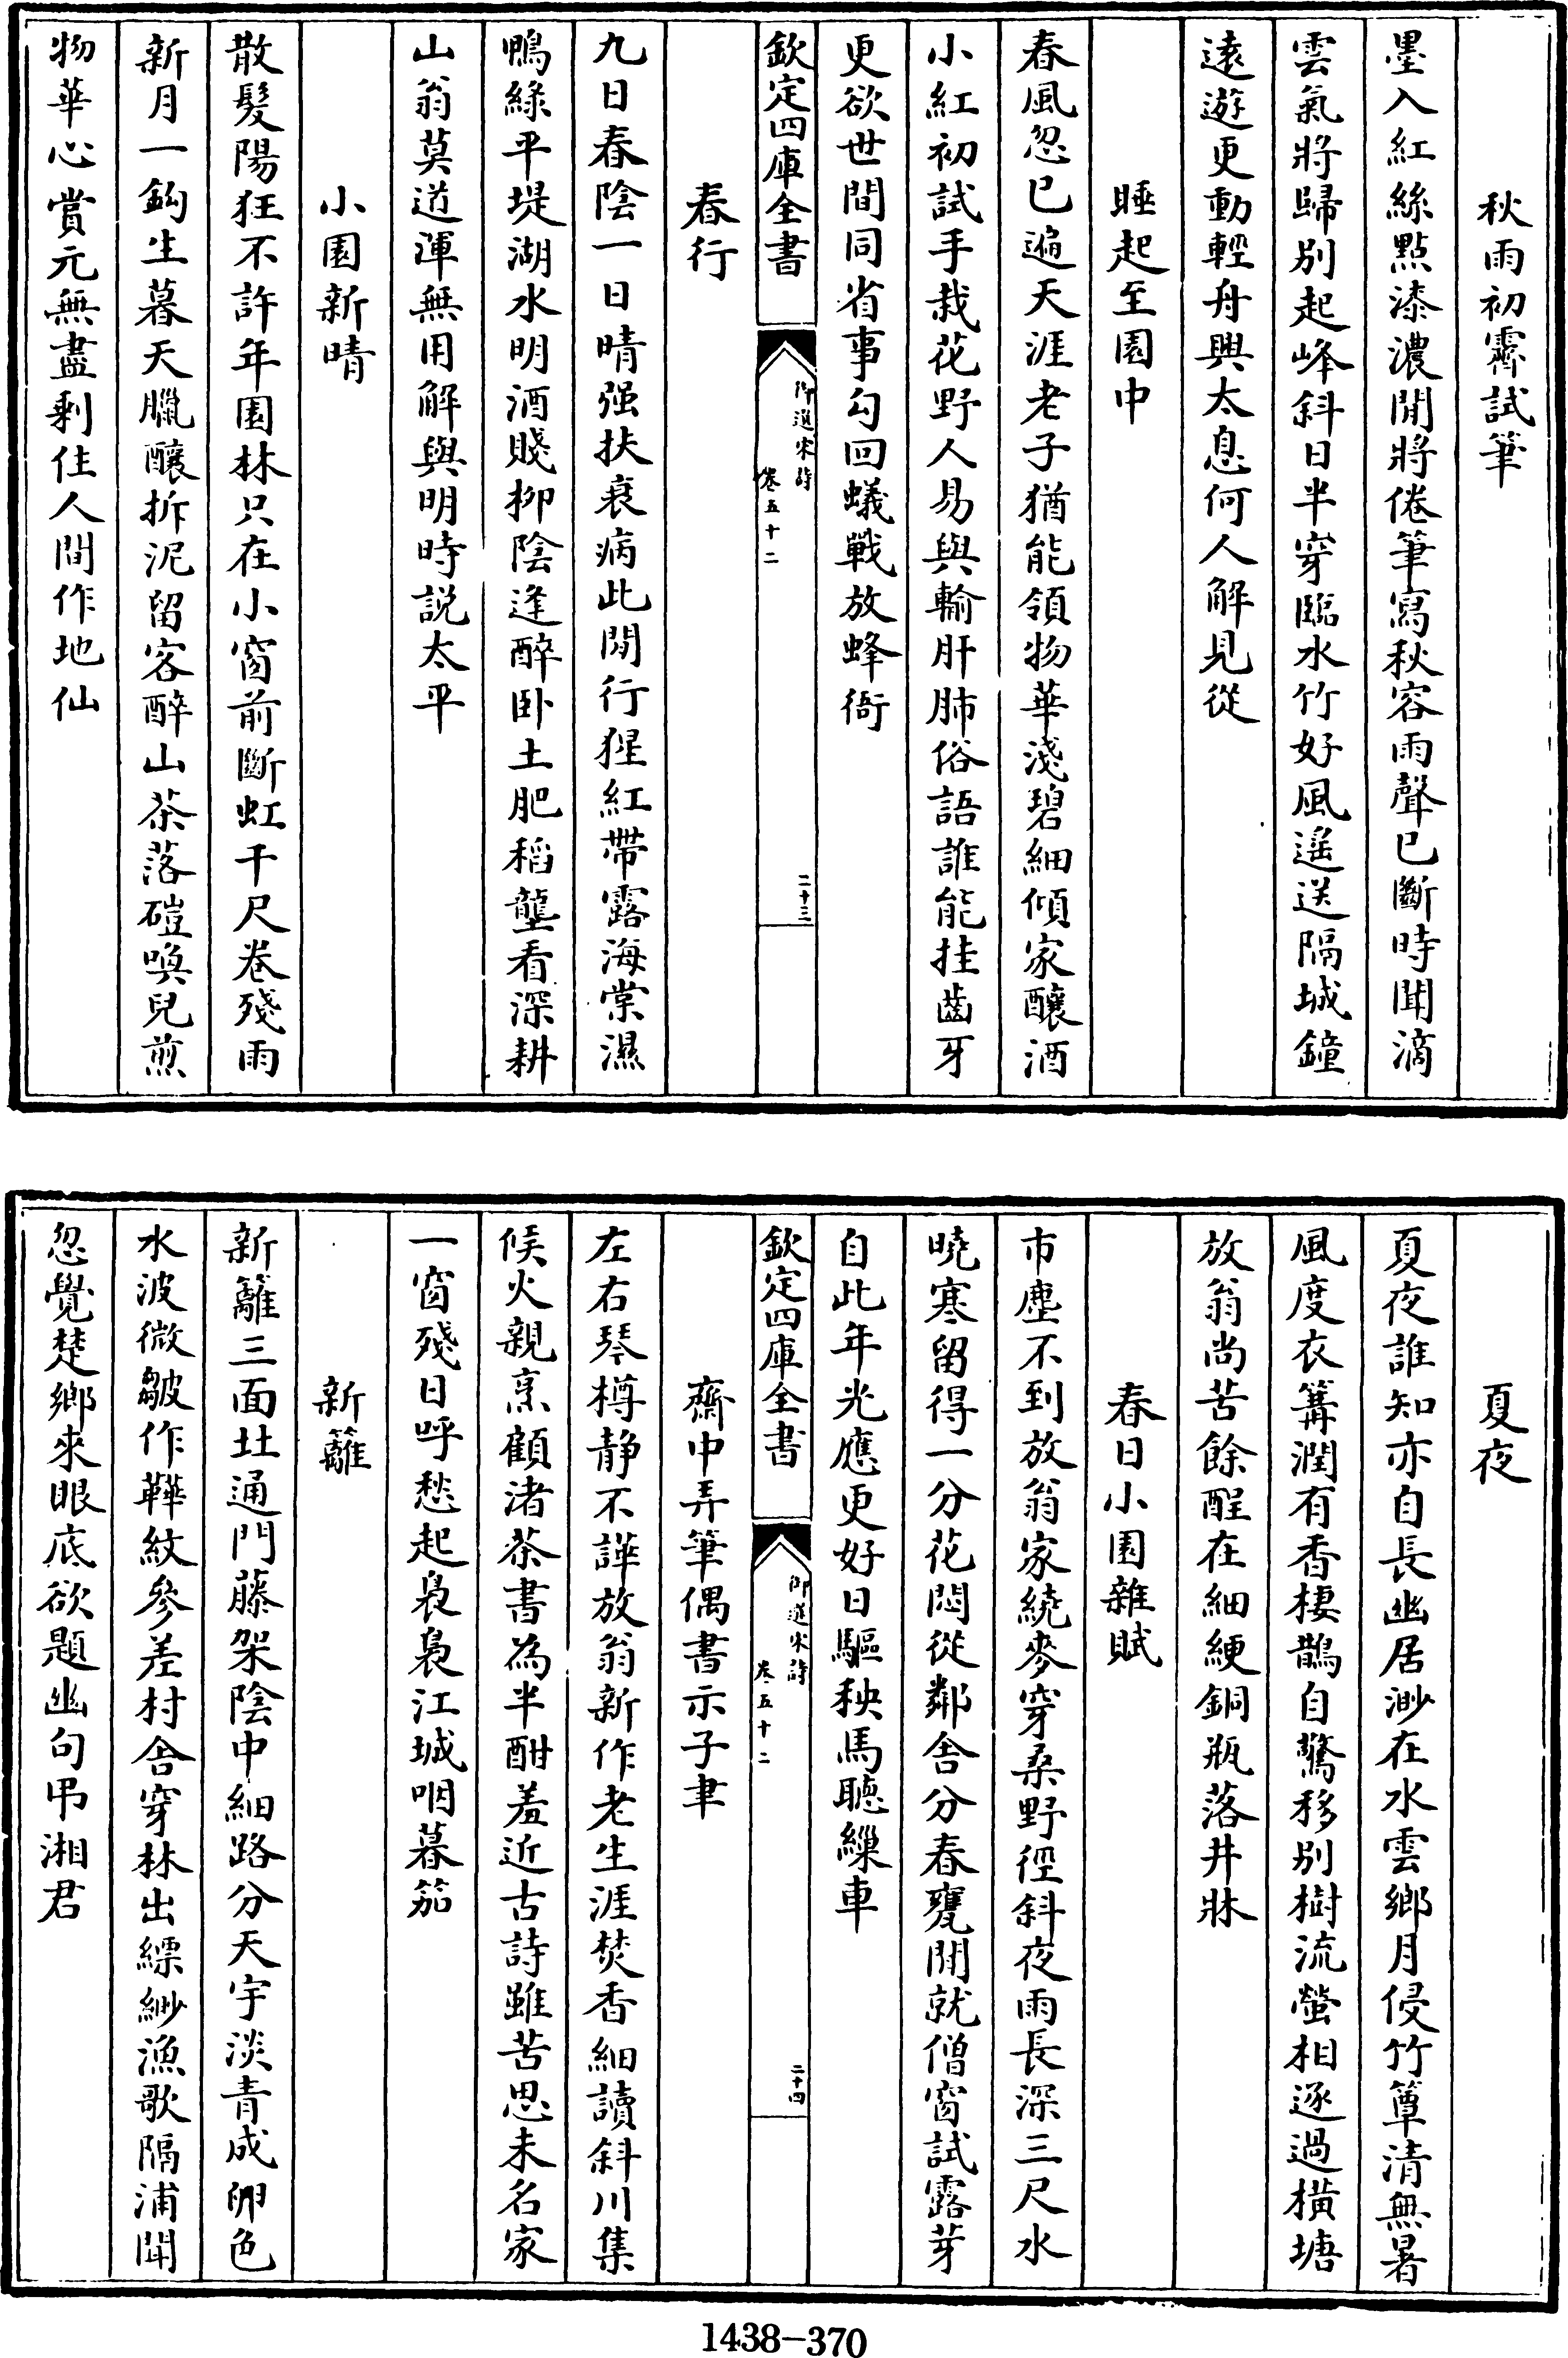 秋雨初霽試筆
墨入紅絲點漆濃閒將倦筆寫秋容雨聲已斷時聞滴
雲氣將歸別起峰斜日半穿臨水竹好風遥送隔城鐘
遠遊更動輕舟興太息何人解見從
睡起至園中
春風忽已遍天涯老子猶能領物華淺碧細傾家釀酒
小紅初試手栽花野人易與輸肝肺俗語誰能挂齒牙
更欲世間同省事勾回蟻戰放蜂衙
欽定四庫全書
御選宋詩
卷五十二
二十三
春行
九日春陰一日晴强扶衰病此閒行猩紅帶露海棠濕
鴨綠平堤湖水明酒賤柳陰逢醉卧土肥稻壟看深耕
山翁莫道渾無用解與明時説太平
小園新晴
散髮陽狂不許年園林只在小窗前斷虹千尺卷殘雨
新月一鈎生暮天臘釀拆泥留客醉山茶落磑喚兒煎
物華心賞元無盡剩住人間作地仙
夏夜
夏夜誰知亦自長幽居渺在水雲鄉月侵竹簟清無暑
風度衣篝潤有香棲鵲自驚移別樹流螢相逐過横塘
放翁尚苦餘酲在細綆銅瓶落井牀
春日小園雜賦
市塵不到放翁家繞麥穿桑野徑斜夜雨長深三尺水
曉寒留得一分花悶從鄰舍分春甕閒就僧窗試露芽
自此年光應更好日驅秧馬聽繅車
欽定四庫全書
御選宋詩
卷五十二
二十四
齋中弄筆偶書示子聿
左右琴樽静不譁放翁新作老生涯焚香細讀斜川集
候火親烹顧渚茶書為半酣羞近古詩雖苦思未名家
一窗殘日呼愁起裊裊江城咽暮笳
新籬
新籬三面𡈽通門藤架陰中細路分天宇淡青成卵色
水波微皺作鞾紋參差村舍穿林出縹緲漁歌隔浦聞
忽覺楚鄉來眼底欲題幽句弔湘君
1438-370